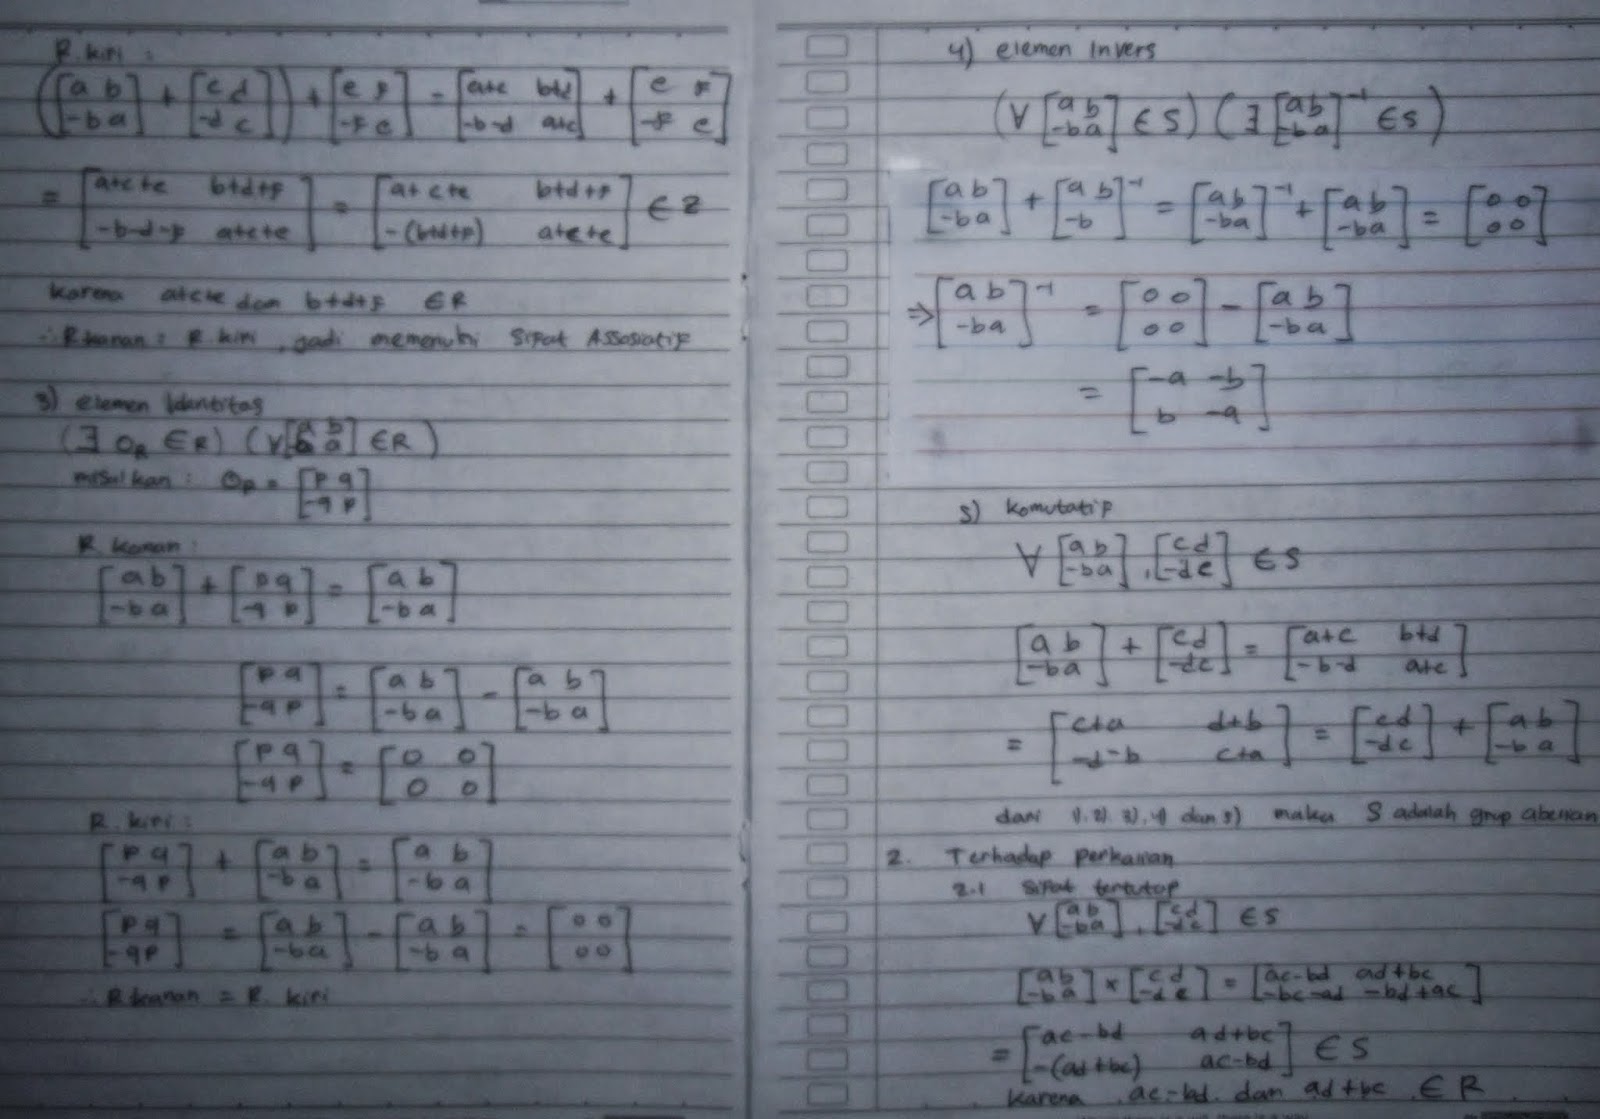 R. kiri :
([a b -b a] + [c d -d c]) + [e f -f e] = [a+c b+d -b-d a+c] + [e f -f e]
= [a+c+e b+d+f -b-d-f a+c+e] = [a+c+e b+d+f -(b+d+f) a+c+e] ∈ Z
Karena a+c+e dan b+d+f ∈ R
∴ R.kanan = R.kiri, jadi memenuhi Sifat Assosiatif
3) elemen Identitas
(∃ O_R ∈ R) (∀ [a b -b a] ∈ R)
misalkan : O_R = [p q -q p]
R. kanan :
[a b -b a] + [p q -q p] = [a b -b a]
[p q -q p] = [a b -b a] - [a b -b a]
[p q -q p] = [0 0 0 0]
R. kiri :
[p q -q p] + [a b -b a] = [a b -b a]
[p q -q p] = [a b -b a] - [a b -b a] = [0 0 0 0]
∴ R.kanan = R. kiri
4) elemen Invers
(∀ [a b -b a] ∈ S) (∃ [a b -b a]⁻¹ ∈ S)
[a b -b a] + [a b -b]⁻¹ = [a b -b a]⁻¹ + [a b -b a] = [0 0 0 0]
⇒ [a b -b a]⁻¹ = [0 0 0 0] - [a b -b a]
= [-a -b b -a]
5) Komutatif
∀ [a b -b a], [c d -d c] ∈ S
[a b -b a] + [c d -d c] = [a+c b+d -b-d a+c]
= [c+a d+b -d-b c+a] = [c d -d c] + [a b -b a]
dari 1), 2), 3), 4) dan 5) maka S adalah grup abelian
2. Terhadap Perkalian
2.1 Sifat tertutup
∀ [a b -b a], [c d -d c] ∈ S
[a b -b a] × [c d -d c] = [ac-bd ad+bc -bc-ad -bd+ac]
= [ac-bd ad+bc -(ad+bc) ac-bd] ∈ S
Karena ac-bd dan ad+bc ∈ R